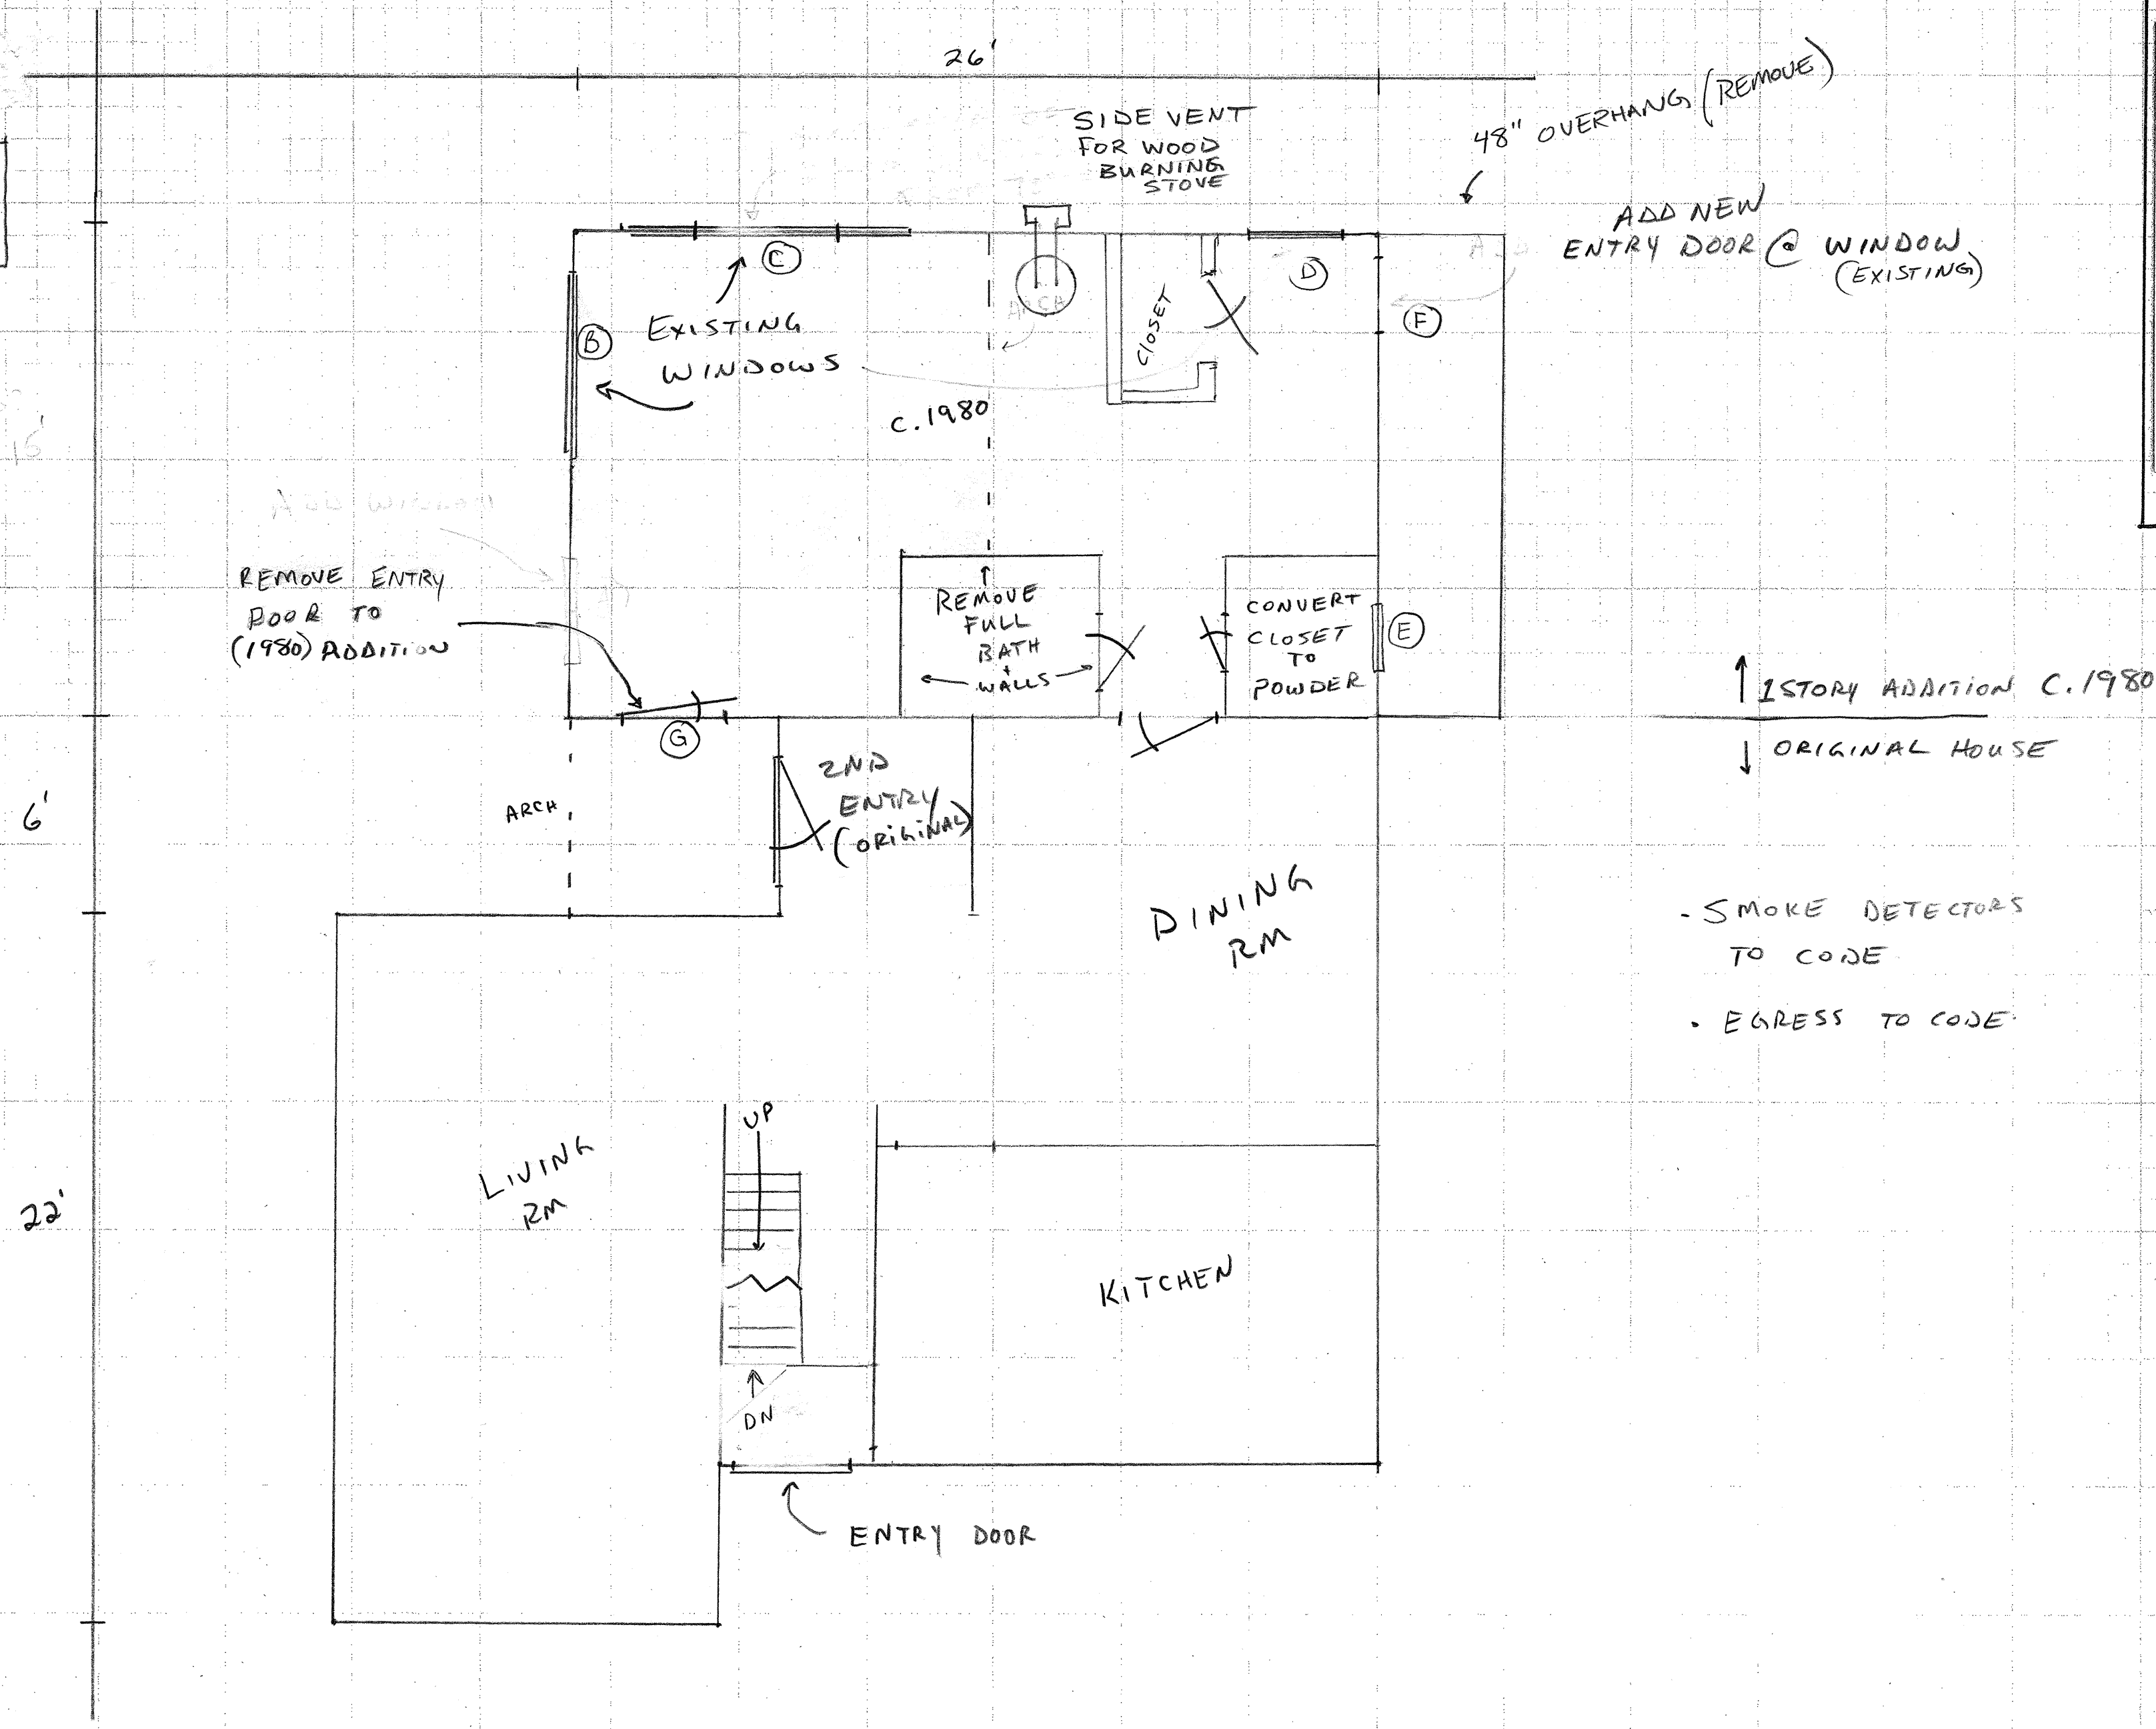 26'
48" OVERHANG (REMOVE)
SIDE VENT
FOR WOOD
BURNING
STOVE
ADD NEW
ENTRY DOOR @ WINDOW
(EXISTING)
C
D
B
EXISTING
WINDOWS
CLOSET
ARCH
F
C. 1980
REMOVE ENTRY
DOOR TO
(1980) ADDITION
REMOVE
FULL
BATH
+
WALLS
CONVERT
CLOSET
TO
POWDER
E
1 STORY ADDITION C. 1980
ORIGINAL HOUSE
G
2ND
ENTRY
(ORIGINAL)
ARCH
6'
DINING
RM
- SMOKE DETECTORS
TO CODE
• EGRESS TO CODE
UP
LIVING
RM
22'
KITCHEN
DN
ENTRY DOOR